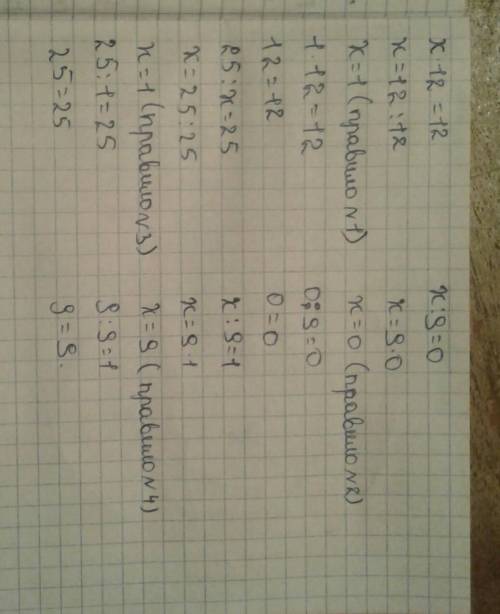 x·12=12
x=12:12
x=1 (правило №1)
1·12=12
12=12
25:x=25
x=25:25
x=1 (правило №3)
25:1=25
25=25
x:9=0
x=9·0
x=0 (правило №2)
0:9=0
0=0
x:9=1
x=9·1
x=9 (правило №4)
9:9=1
9=9.